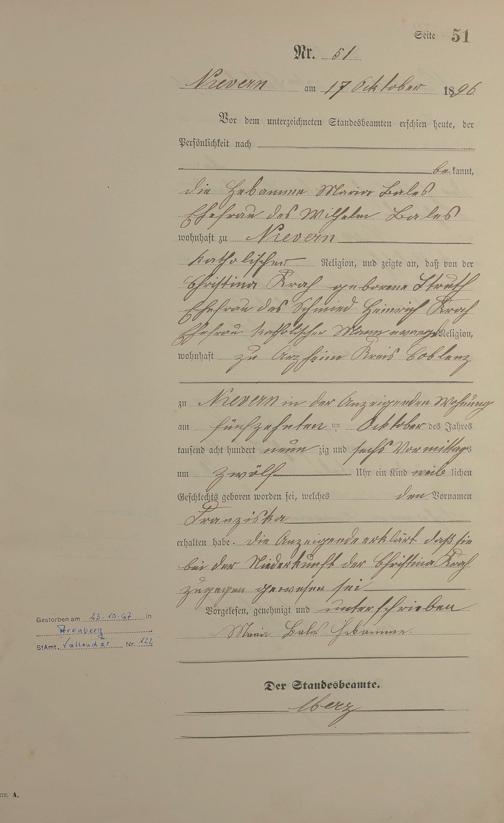 Seite 51
Nr. 51
Nievern am 17 Oktober 1896
Vor dem unterzeichneten Standesbeamten erschien heute, der
Persönlichkeit nach
bekannt,
die Hebamme Maria Bales
Ehefrau des Wilhelm Bales
wohnhaft zu Nievern
katholischer Religion, und zeigte an, daß von der
Christina Krah geborene Struth
Ehefrau des Schmied Heinrich Krah
Ehefrau katholischer Mann evang. Religion,
wohnhaft zu Arzheim Kreis Coblenz
zu Nievern in der Anzeigenden Wohnung
am fünfzehnten Oktober des Jahres
tausend acht hundert neun zig und sechs Vormittags
um zwölf Uhr ein Kind weib lichen
Geschlechts geboren worden sei, welches den Vornamen
Franziska
erhalten habe. Die Anzeigende erklärt daß sie
bei der Niederkunft der Christina Krah
zugegen gewesen sei
Vorgelesen, genehmigt und unterschrieben
Maria Bales Hebamme
Gestorben am 10.67 in
Arenberg
StAmt. Vallendar Nr.
Der Standesbeamte.
A.